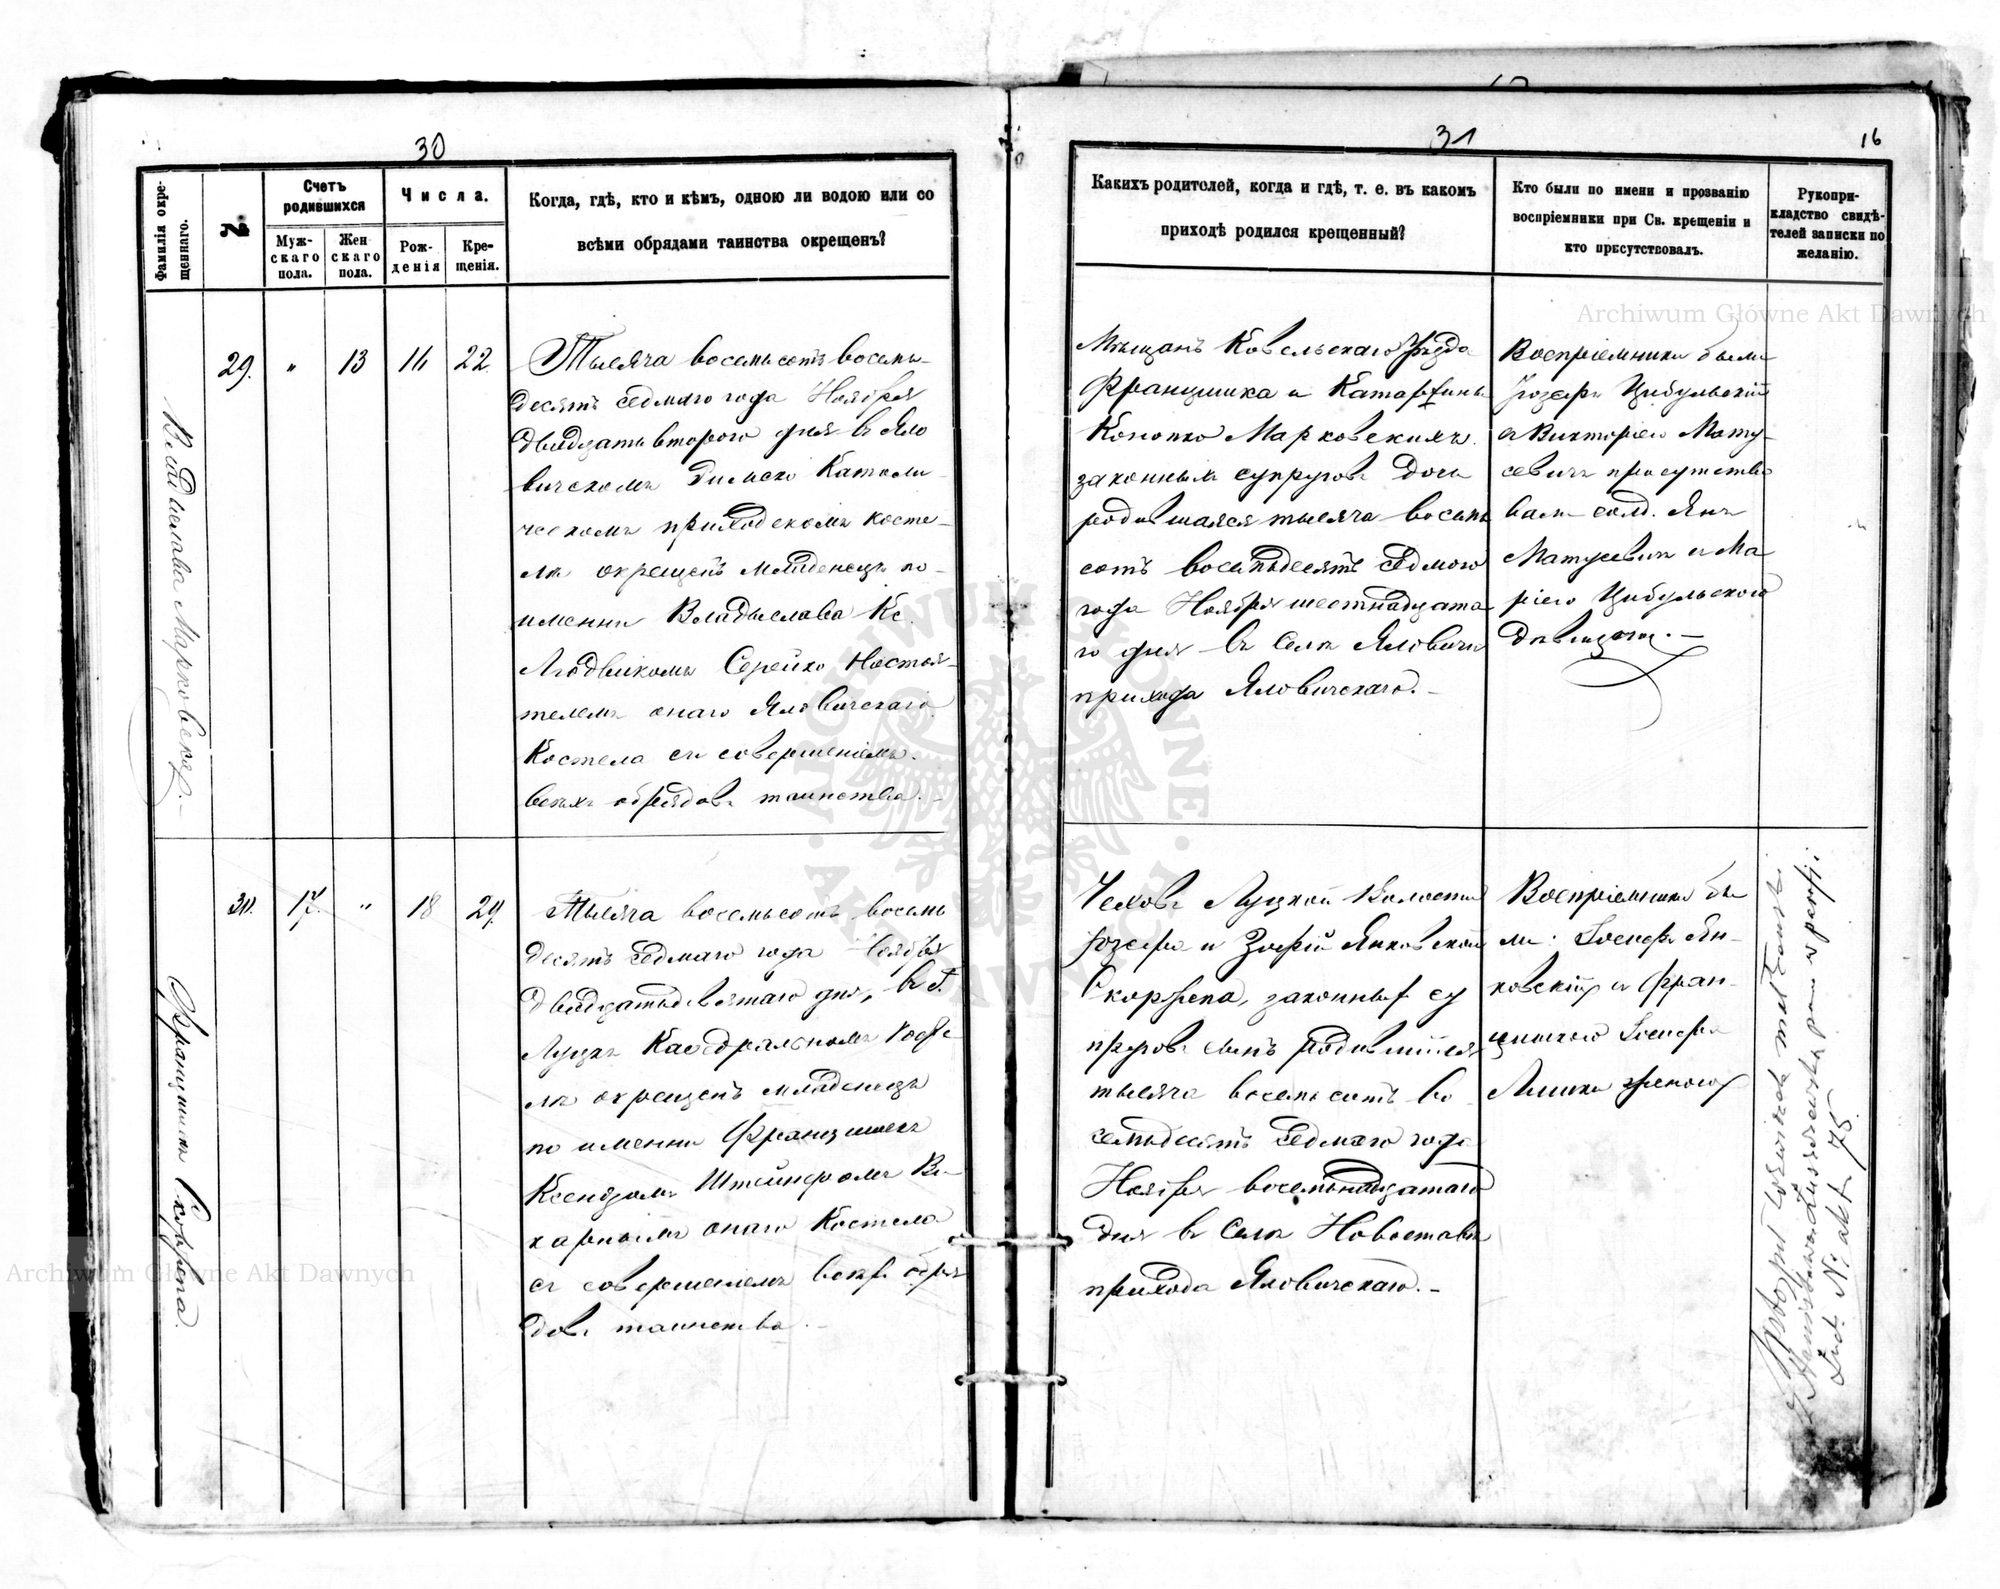 30
Фамилія окре-
щеннаго.
№.
Счетъ
родившихся
Муж-
скаго
пола.
Жен
скаго
пола.
Числа.
Рож-
денія
Кре-
щенія.
Когда, гдѣ, кто и кѣмъ, одною ли водою или со
всѣми обрядами таинства окрещенъ?
Владислава Марковская.
29.
"
13
16
22.
Тысяча восемьсотъ восемь-
десятъ седмаго года Ноября
двадцать втораго дня въ Яло
вичскомъ Римско Католи-
ческомъ приходскомъ косте-
лѣ окрещенъ младенецъ по-
имени Владыслава Кс.
Людвикомъ Серейко Настоя-
телемъ онаго Яловичскаго
Костела съ совершеніемъ
всѣхъ обрядовъ таинства.-
Францишекъ Скоржепа.
30.
17.
"
18
29.
Тысяча восемьсотъ восемь
десятъ седмаго года Ноября
двадцатьдевятаго дня, въ г.
Луцкѣ Каѳедральномъ Косте
лѣ окрещенъ младенецъ
по имени Францишекъ
Ксендзомъ Штейнромъ Ви-
карнымъ онаго Костела
съ совершеніемъ всѣхъ обря
довъ таинства.-
31
16
Какихъ родителей, когда и гдѣ, т. е. въ какомъ
приходѣ родился крещенный?
Кто были по имени и прозванію
воспріемники при Св. крещеніи и
кто присутствовалъ.
Рукопри-
кладство свидѣ-
телей записки по
желанію.
Мѣщанъ Ковельскаго Уѣзда
Францишка и Катаржины
Конопко Марковскихъ
законныхъ супруговъ дочь
родившаяся тысяча восемь
сотъ восемьдесятъ седмого
года Ноября шестнадцата
го дня въ Селѣ Яловичи
прихода Яловичскаго.-
Воспріемники были
Іозефъ Цыбульскій
и Викторія Мату-
севичъ присутство
вали солд. Янъ
Матусевичъ и Ма
рією Цыбульского
дѣвицою.-
Чеховъ Луцкой Волости
Іозефа и Зофіи Янковской
Скоржепа, законныхъ су
пруговъ сынъ родившійся
тысяча восемьсотъ во
семьдесятъ седмаго года
Ноября восемьнадцатаго
дня въ Селѣ Новоставѣ
прихода Яловичскаго.-
Воспріемники бы
ли: Іосифъ Ян-
ковскій и Фран-
цишкою Іосифа
женою
Akt. 75
Archiwum Główne Akt Dawnych
Archiwum Główne Akt Dawnych
ARCHIWUM GŁÓWNE AKT DAWNYCH